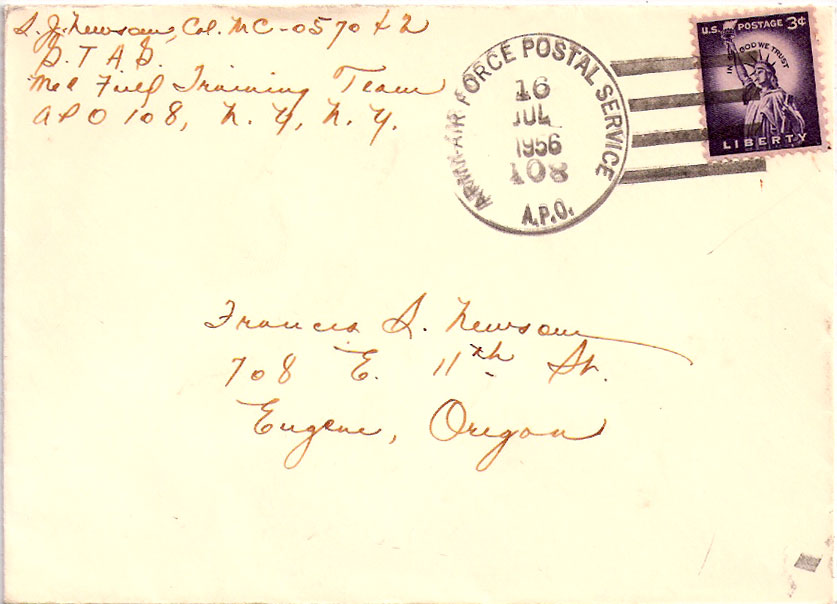 S. J. Newsom, Col. MC-057042
D. T A D.
Med Field Training Team
APO 108, N. Y, N. Y.
ARMY-AIR FORCE POSTAL SERVICE
16
JUL
1956
108
A.P.O.
U.S. POSTAGE 3¢
IN GOD WE TRUST
LIBERTY
Francis S. Newsom
708 E. 11th St.
Eugene, Oregon